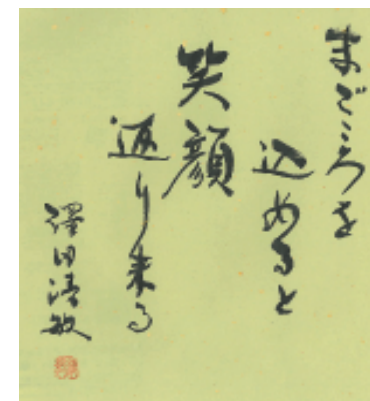 まごころを
込めると
笑顔
返り来る
澤田清敏